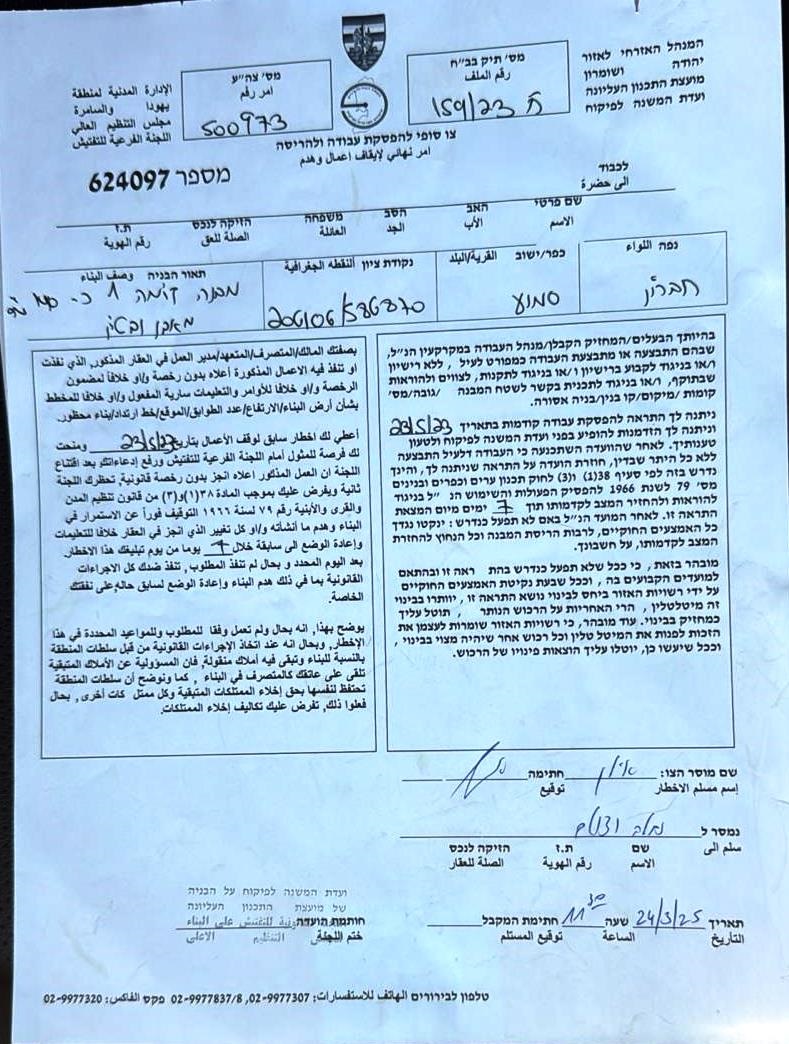 המנהל האזרחי לאזור
יהודה ושומרון
מועצת התכנון העליונה
ועדת המשנה לפיקוח
מס' תיק בב"ח
رقم الملف
ח 159/23
מס' צה"ע
امر رقم
500973
الإدارة المدنية لمنطقة
يهودا والسامرة
مجلس التنظيم العالي
اللجنة الفرعية للتفتيش
צו סופי להפסקת עבודה ולהריסה
امر نهائي لإيقاف اعمال وهدم
מספר 624097
לכבוד
الى حضرة
שם פרטי האב הסב משפחה הזיקה לנכס ת.ז
الاسم الأب الجد العائلة الصلة للعق رقم الهوية
נפה اللواء כפר/ישוב القرية/البلد נקודת ציון النقطه الجغرافية תאור הבניה وصف البناء
חברון סמוע מבנה קומה 1 כ-
מאבן ובטון
בהיותך הבעלים/המחזיק הקבלן/מנהל העבודה במקרקעין הנ"ל,
שבהם התבצעה או מתבצעת העבודה כמפורט לעיל, ללא רישיון
ו/או בניגוד לקבוע ברישיון ו/או בניגוד לתקנות, לצווים ולהוראות
שבתוקף, ו/או בניגוד לתכנית בקשר לשטח המבנה /גובה/מס'
קומות /מיקום/קו בנין/בניה אסורה.
ניתנה לך התראה להפסקת עבודה קודמות בתאריך 23/5/23
וניתנה לך הזדמנות להופיע בפני ועדת המשנה לפיקוח ולטעון
טענותיך. לאחר שהוועדה השתכנעה כי העבודה דלעיל התבצעה
ללא כל היתר שבדין, חוזרת הועדה על התראה שניתנה לך, והינך
נדרש בזה לפי סעיף 38(1) ו(3) לחוק תכנון ערים וכפרים ובנינים
מס' 79 לשנת 1966 להפסיק הפעולות והשימוש הנ"ל בניגוד
להוראות ולהחזיר המצב לקדמותו תוך 7 ימים מיום המצאת
התראה זו. לאחר המועד הנ"ל באם לא תפעל כנדרש: ינקטו נגדך
כל האמצעים החוקיים, לרבות הריסת המבנה וכל הנחוץ להחזרת
המצב לקדמותו, על חשבונך.
מובהר בזאת, כי ככל שלא תפעל כנדרש בהת ראה זו ובהתאם
למועדים הקבועים בה, וככל שבעת נקיטת האמצעים החוקיים
על ידי רשויות האזור ביחס לבינוי נושא התראה זו, יוותרו בבינוי
זה מיטלטלין, הרי האחריות על הרכוש הנותר , תוטל עליך
כמחזיק בבינוי. עוד מובהר, כי רשויות האזור שומרות לעצמן את
הזכות לפנות את המיטל טלין וכל רכוש אחר שיהיה מצוי בבינוי,
וככל שיעשו כן, יוטלו עליך הוצאות פינויו של הרכוש.
بصفتك المالك/المتصرف/المتعهد/مدير العمل في العقار المذكور, الذي نفذت
او تنفذ فيه الاعمال المذكورة أعلاه بدون رخصة و/او خلافاً لمضمون
الرخصة و/او خلافا للأوامر والتعليمات سارية المفعول و/او خلافا للمخطط
بشأن أرض البناء/الارتفاع/عدد الطوابق/الموقع/خط ارتداد/بناء محظور.
أعطي لك اخطار سابق لوقف الأعمال بتاريخ 23/5/23 ومنحت
لك فرصة للمثول أمام اللجنة الفرعية للتفتيش ورفع إدعاءاتك, بعد اقتناع
اللجنة ان العمل المذكور اعلاه انجز بدون رخصة قانونية, تحظرك اللجنة
ثانية ويفرض عليك بموجب المادة ٣٨(١)و(٣) من قانون تنظيم المدن
والقرى والأبنية رقم ٧٩ لسنة ١٩٦٦ التوقيف فوراً عن الاستمرار في
البناء وهدم ما أنشأته و/او كل تغيير الذي انجز في العقار خلافا للتعليمات
وإعادة الوضع الى سابقة خلال 7 يوما من يوم تبليغك هذا الاخطار.
بعد اليوم المحدد و بحال لم تنفذ المطلوب, تنفذ ضدك كل الاجراءات
القانونية بما في ذلك هدم البناء وإعادة الوضع لسابق حاله, على نفقتك
الخاصة.
يوضح بهذا, انه بحال ولم تعمل وفقا للمطلوب وللمواعيد المحددة في هذا
الإخطار, وبحال انه عند اتخاذ الإجراءات القانونية من قبل سلطات المنطقة
بالنسبة للبناء وتبقى فيه أملاك منقولة, فان المسؤولية عن الأملاك المتبقية
تلقى على عاتقك كالمتصرف في البناء, كما ونوضح أن سلطات المنطقة
تحتفظ لنفسها بحق إخلاء الممتلكات المتبقية وكل ممتل كات أخرى, بحال
فعلوا ذلك, تفرض عليك تكاليف إخلاء الممتلكات.
שם מוסר הצו: אילן חתימה
إسم مسلم الاخطار توقيع
נמסר ל
سلم الى שם ת.ז הזיקה לנכס
الاسم رقم الهوية الصلة للعقار
תאריך 24/3/25 שעה חתימת המקבל
التاريخ الساعة توقيع المستلم
ועדת המשנה לפיקוח על הבניה
של מועצת התכנון העליונה
חותמת הועדה
ختم اللجنة
للتفتيش على البناء
التنظيم الاعلى
טלפון לבירורים الهاتف للاستفسارات: 02-9977307, 02-9977837/8 פקס الفاكس: 02-9977320